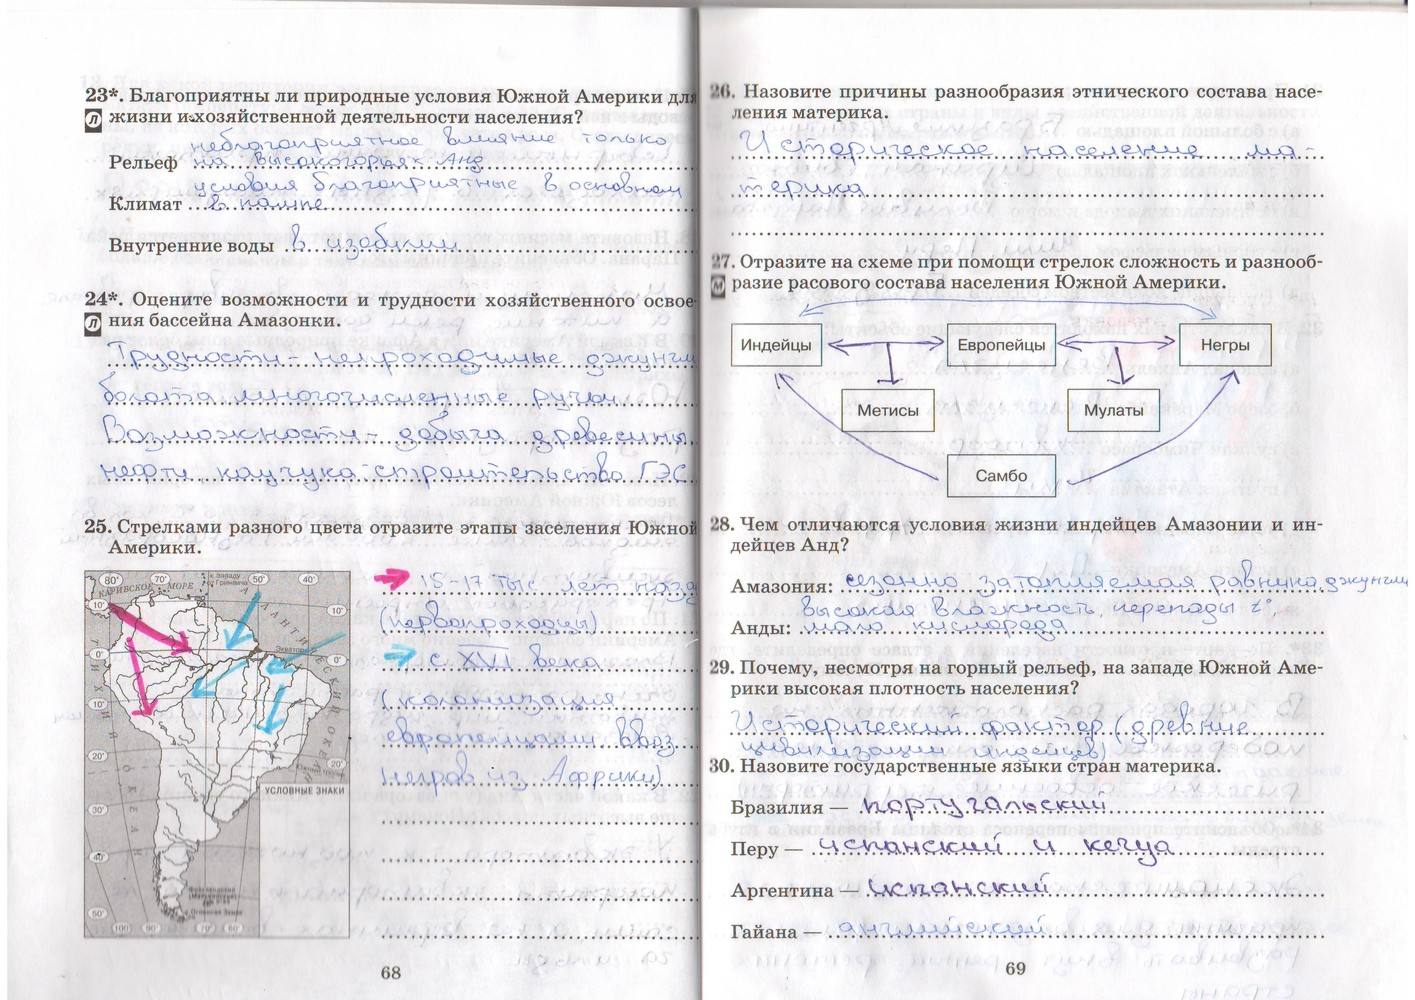 23*. Благоприятны ли природные условия Южной Америки для
Л
жизни и хозяйственной деятельности населения?
неблагоприятное влияние только
Рельеф на высокогорьях Анд
условия благоприятные в основном
Климат
Внутренние воды в изобилии
24*. Оцените возможности и трудности хозяйственного освое-
Л
ния бассейна Амазонки.
Трудности - непроходимые джунгли
болота многочисленные ручьи
Возможности - добыча древесины,
нефти, каучука строительство ГЭС
25. Стрелками разного цвета отразите этапы заселения Южной
Америки.
15-17 тыс лет назад
(первопроходцы)
с XVII века
(колонизация
европейцами ввоз
негров из Африки)
80° 70° к Западу от Гринвича 50° 40°
КАРИБСКОЕ МОРЕ
АТЛАНТИЧЕСКИЙ ОКЕАН
ТИХИЙ ОКЕАН
10° 10°
Экватор
0° 0°
10° 10°
20° 20°
Южный тропик
30°
40°
50°
УСЛОВНЫЕ ЗНАКИ
Фолклендские (Мальвинские) о-ва
о. Огненная Земля
100° 90° 70° 60°
68
26. Назовите причины разнообразия этнического состава насе-
ления материка.
Историческое население ма-
терика
27. Отразите на схеме при помощи стрелок сложность и разнооб-
М
разие расового состава населения Южной Америки.
Индейцы Европейцы Негры
Метисы Мулаты
Самбо
28. Чем отличаются условия жизни индейцев Амазонии и ин-
дейцев Анд?
Амазония: сезонно затопляемая равнина, джунгли
высокая влажность, перепады t°,
Анды: мало кислорода
29. Почему, несмотря на горный рельеф, на западе Южной Аме-
рики высокая плотность населения?
Исторический фактор (древние
цивилизации индейцев)
30. Назовите государственные языки стран материка.
Бразилия — португальский
Перу — испанский и кечуа
Аргентина — испанский
Гайана — английский
69